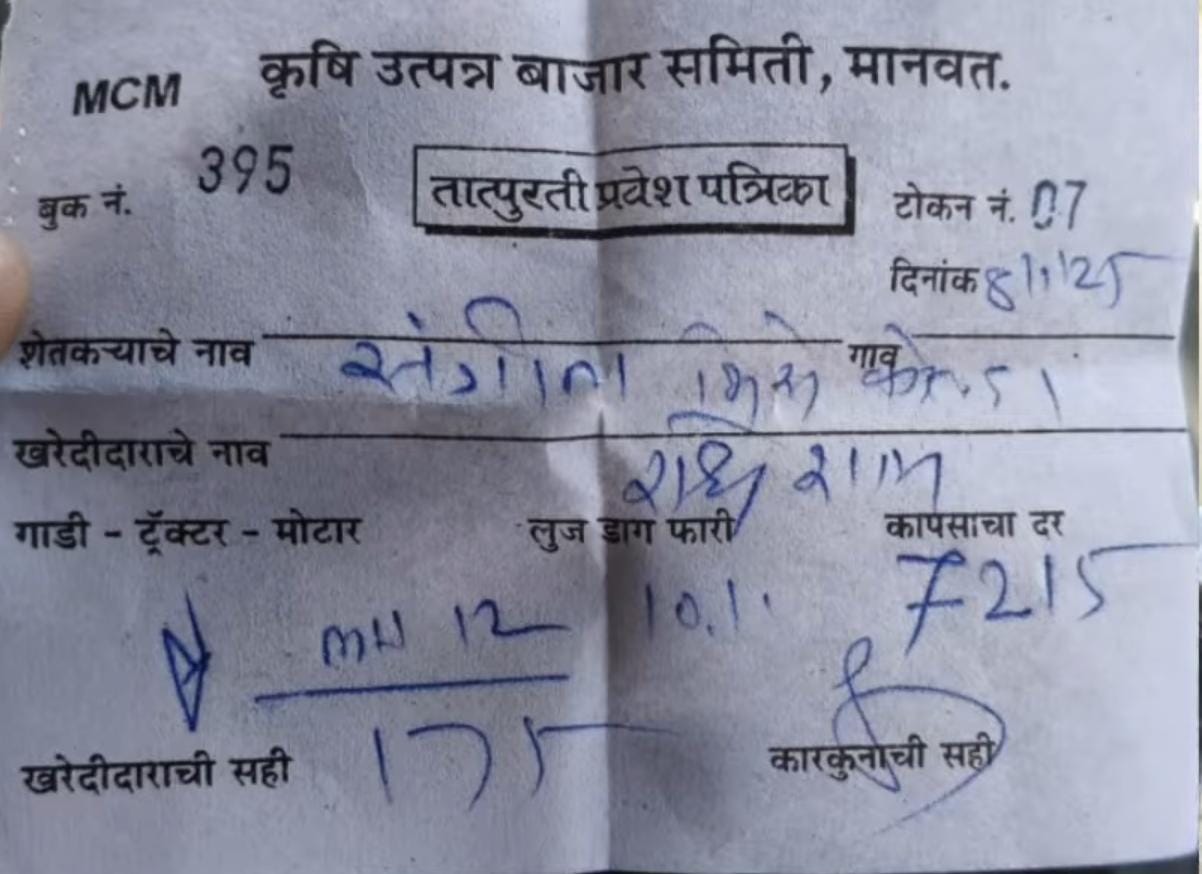 MCM कृषि उत्पन्न बाजार समिती, मानवत.
बुक नं. 395 तात्पुरती प्रवेश पत्रिका टोकन नं. 07
दिनांक 8/1/25
शेतकऱ्याचे नाव संगीता गाव
खरेदीदाराचे नाव
गाडी - ट्रॅक्टर - मोटार लुज डाग फारी कापसाचा दर
MH 12 7215
खरेदीदाराची सही कारकुनाची सही